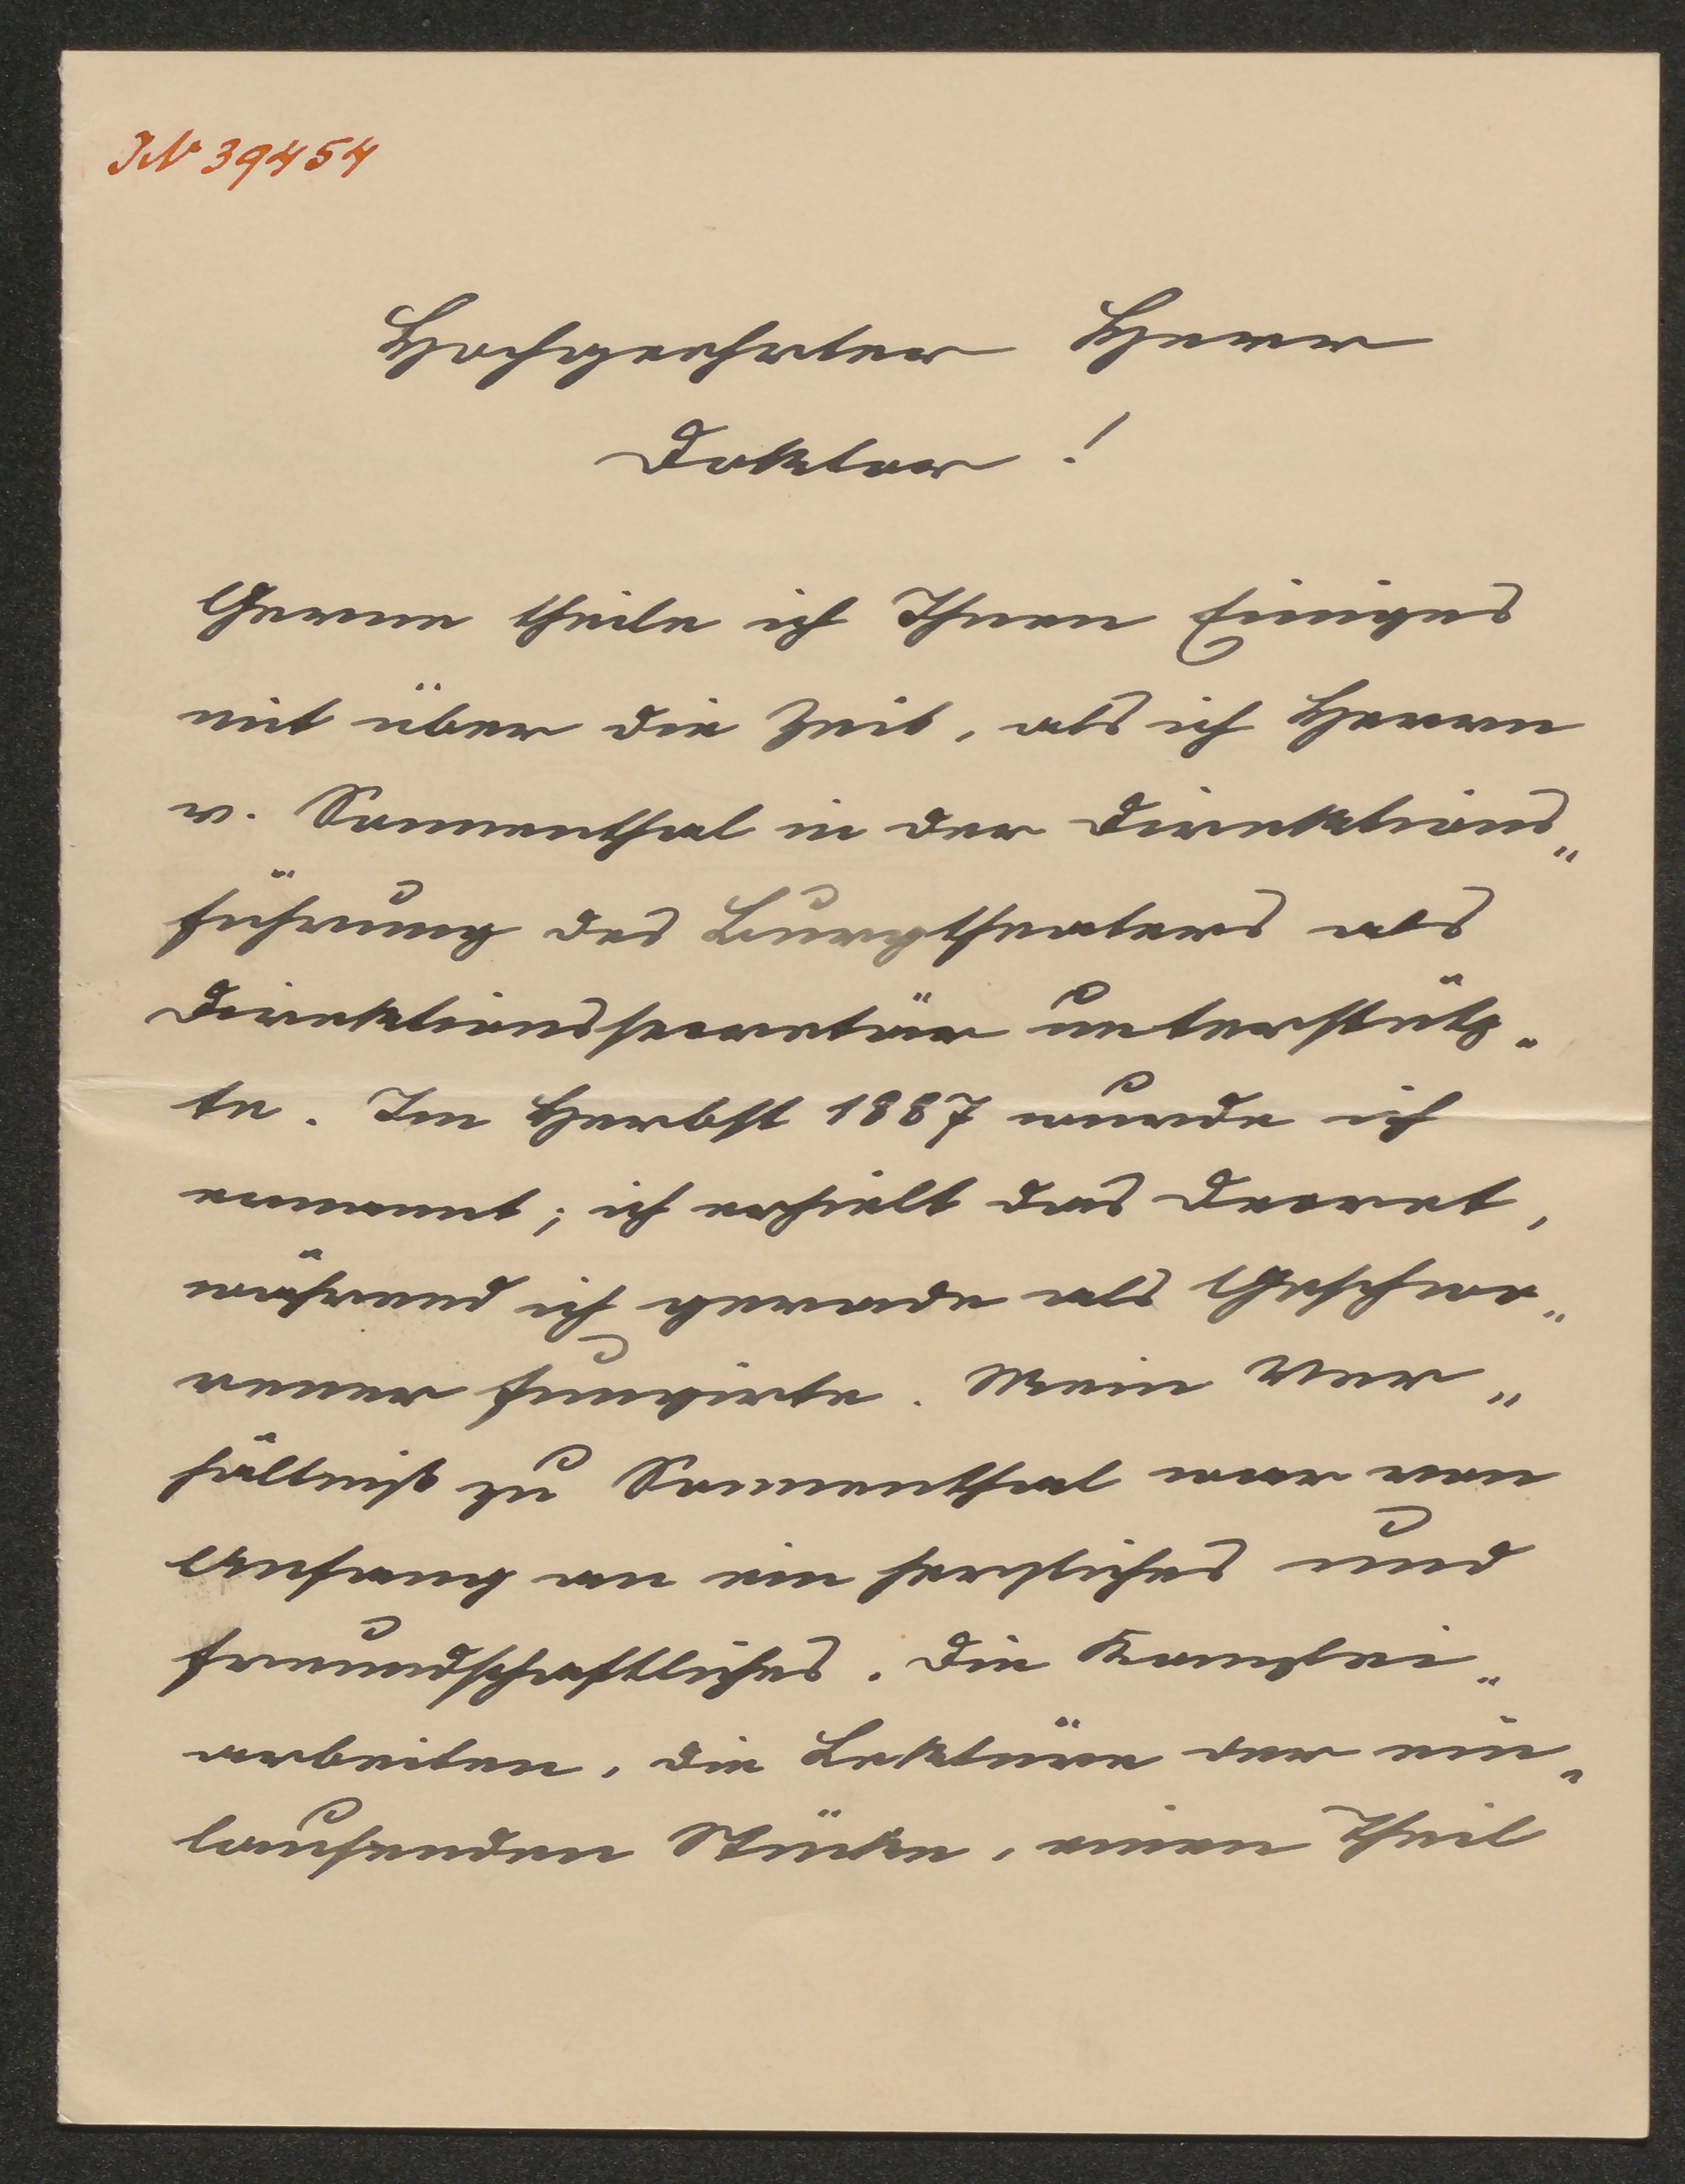 JN 39454
Hochgeehrter Herr
Doktor!
Gerne theile ich Ihnen Einiges
mit über die Zeit, als ich Herrn
v. Sonnenthal in der Direktions„
führung des Burgtheaters als
Direktionssecretär unterstütz„
te. Im Herbst 1887 wurde ich
ernannt; ich erhielt das Decret,
während ich gerade als Geschwo„
rener fungirte. Mein Ver„
hältniß zu Sonnenthal war von
Anfang an ein herzliches und
freundschaftliches. Die Kanzlei„
arbeiten, die Lektüre der ein„
laufenden Stücke, einen Theil